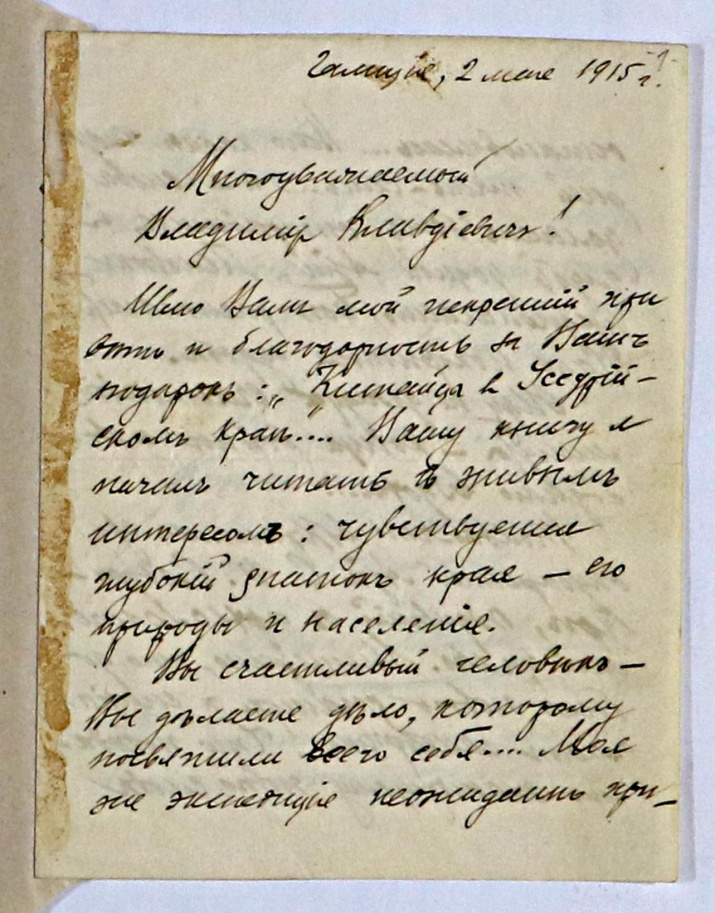 Галиція, 2 мая 1915 г.
Многоуважаемый
Владимір Клавдіевичъ!
Шлю Вамъ мой искренній при
вѣтъ и благодарность за Вашъ
подарокъ: „Китайцы в Уссурій-
скомъ краѣ.... Вашу книгу я
началъ читать съ живымъ
интересомъ: чувствуется
глубокій знатокъ края — его
природы и населенія.
Вы счастливый человѣкъ —
Вы дѣлаете дѣло, которому
посвятили всего себя.... Моя
же экспедиція неожиданно при-